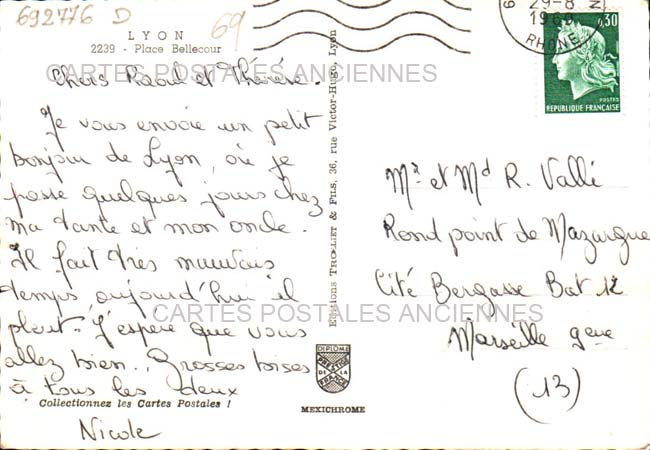 692776 D
69
LYON
2239 - Place Bellecour
CARTES POSTALES ANCIENNES
Chers Raoul et Thérèse.
Je vous envoie un petit
bonjour de Lyon, où je
passe quelques jours chez
ma tante et mon oncle.
Il fait très mauvais
temps aujourd'hui il
pleut. J'espère que vous
allez bien. Grosses bises
à tous les deux
Nicole
Collectionnez les Cartes Postales !
Editions TROLLIET & FILS, 36, rue Victor-Hugo, Lyon
DIPLOME
PRESTIGE
DE LA
FRANCE
MEXICHROME
29-8
1969
RHONE
0,30
POSTES
REPUBLIQUE FRANÇAISE
Mr et Md R. Valli
Rond point de Mazargue
Cité Bergasse Bat 12
CARTES POSTALES ANCIENNES
Marseille 9eme
(13)